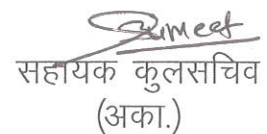 Sumeet
सहायक कुलसचिव
(अका.)